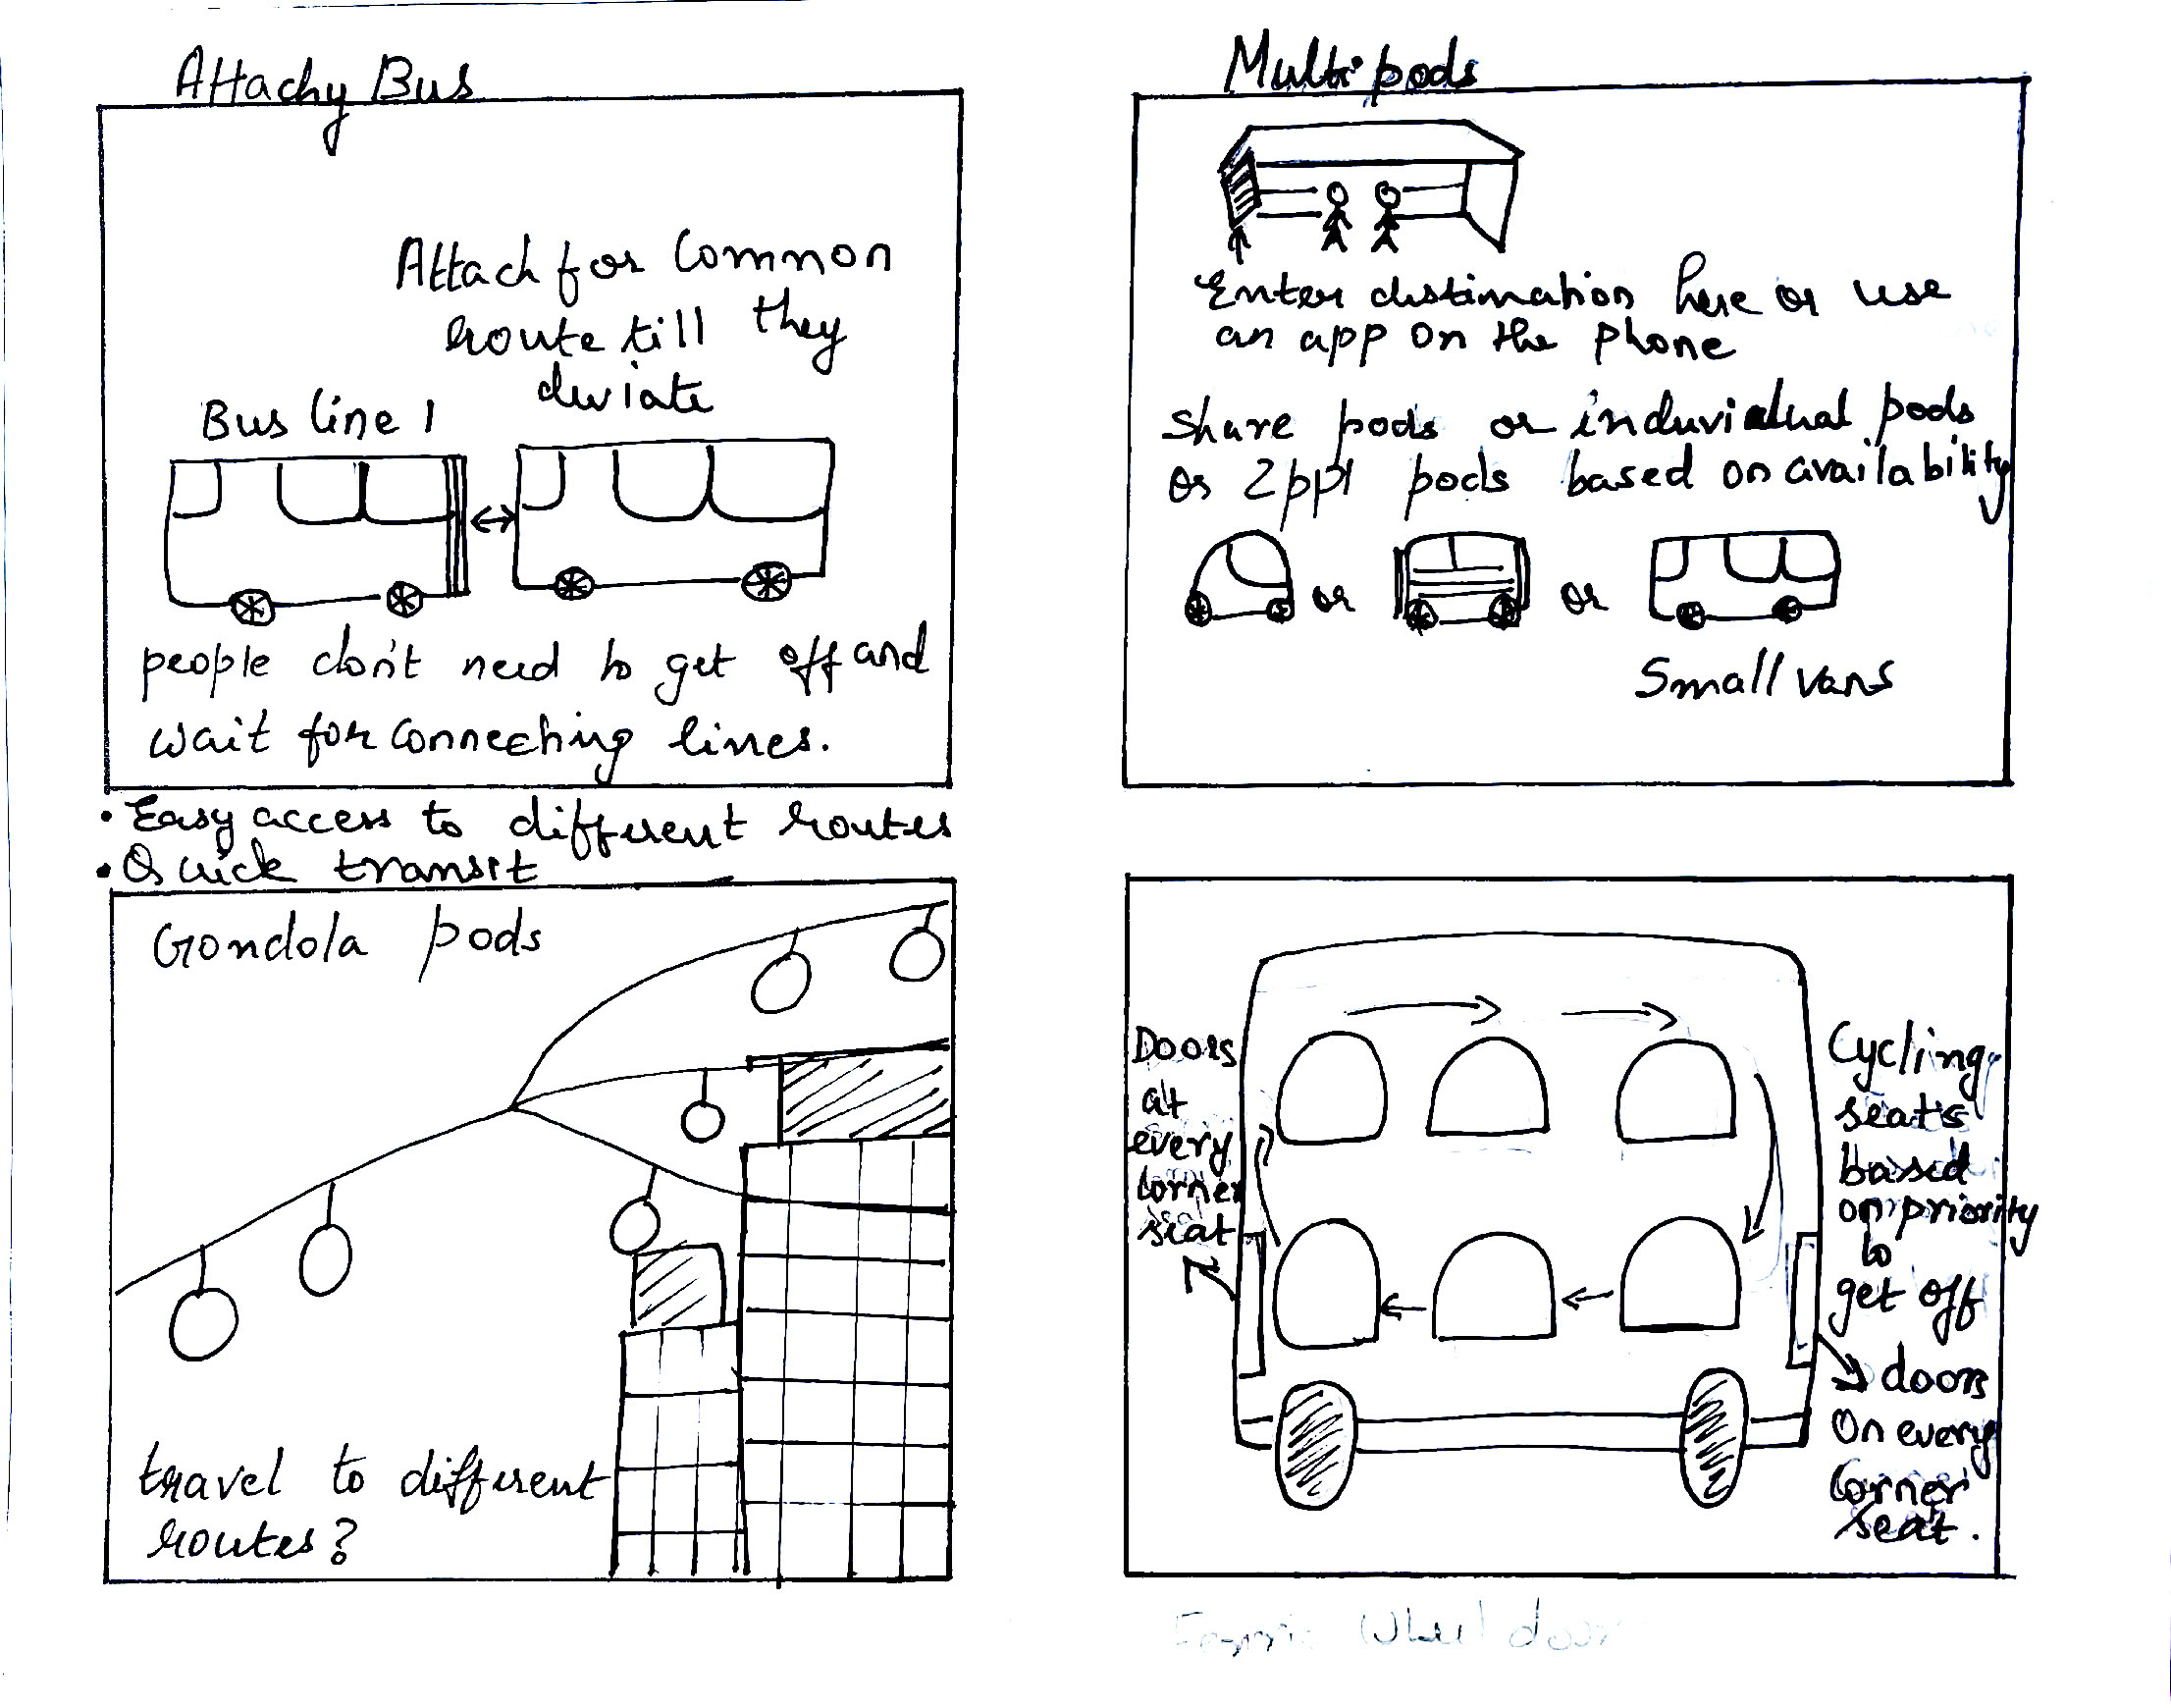 Attachy Bus
Attach for Common
route till they
deviate
Bus line 1
people don't need to get off and
wait for connecting lines.
• Easy access to different routes
• Quick transit
Multi pods
Enter distination here or use
an app on the phone
Share pods or induvidual pods
or 2 ppl pods based on availability
or
or
Small vans
Gondola pods
travel to different
routes?
Doors
at
every
corner
seat
Cycling
seats
based
on priority
to
get off
doors
On every
Corner
seat.